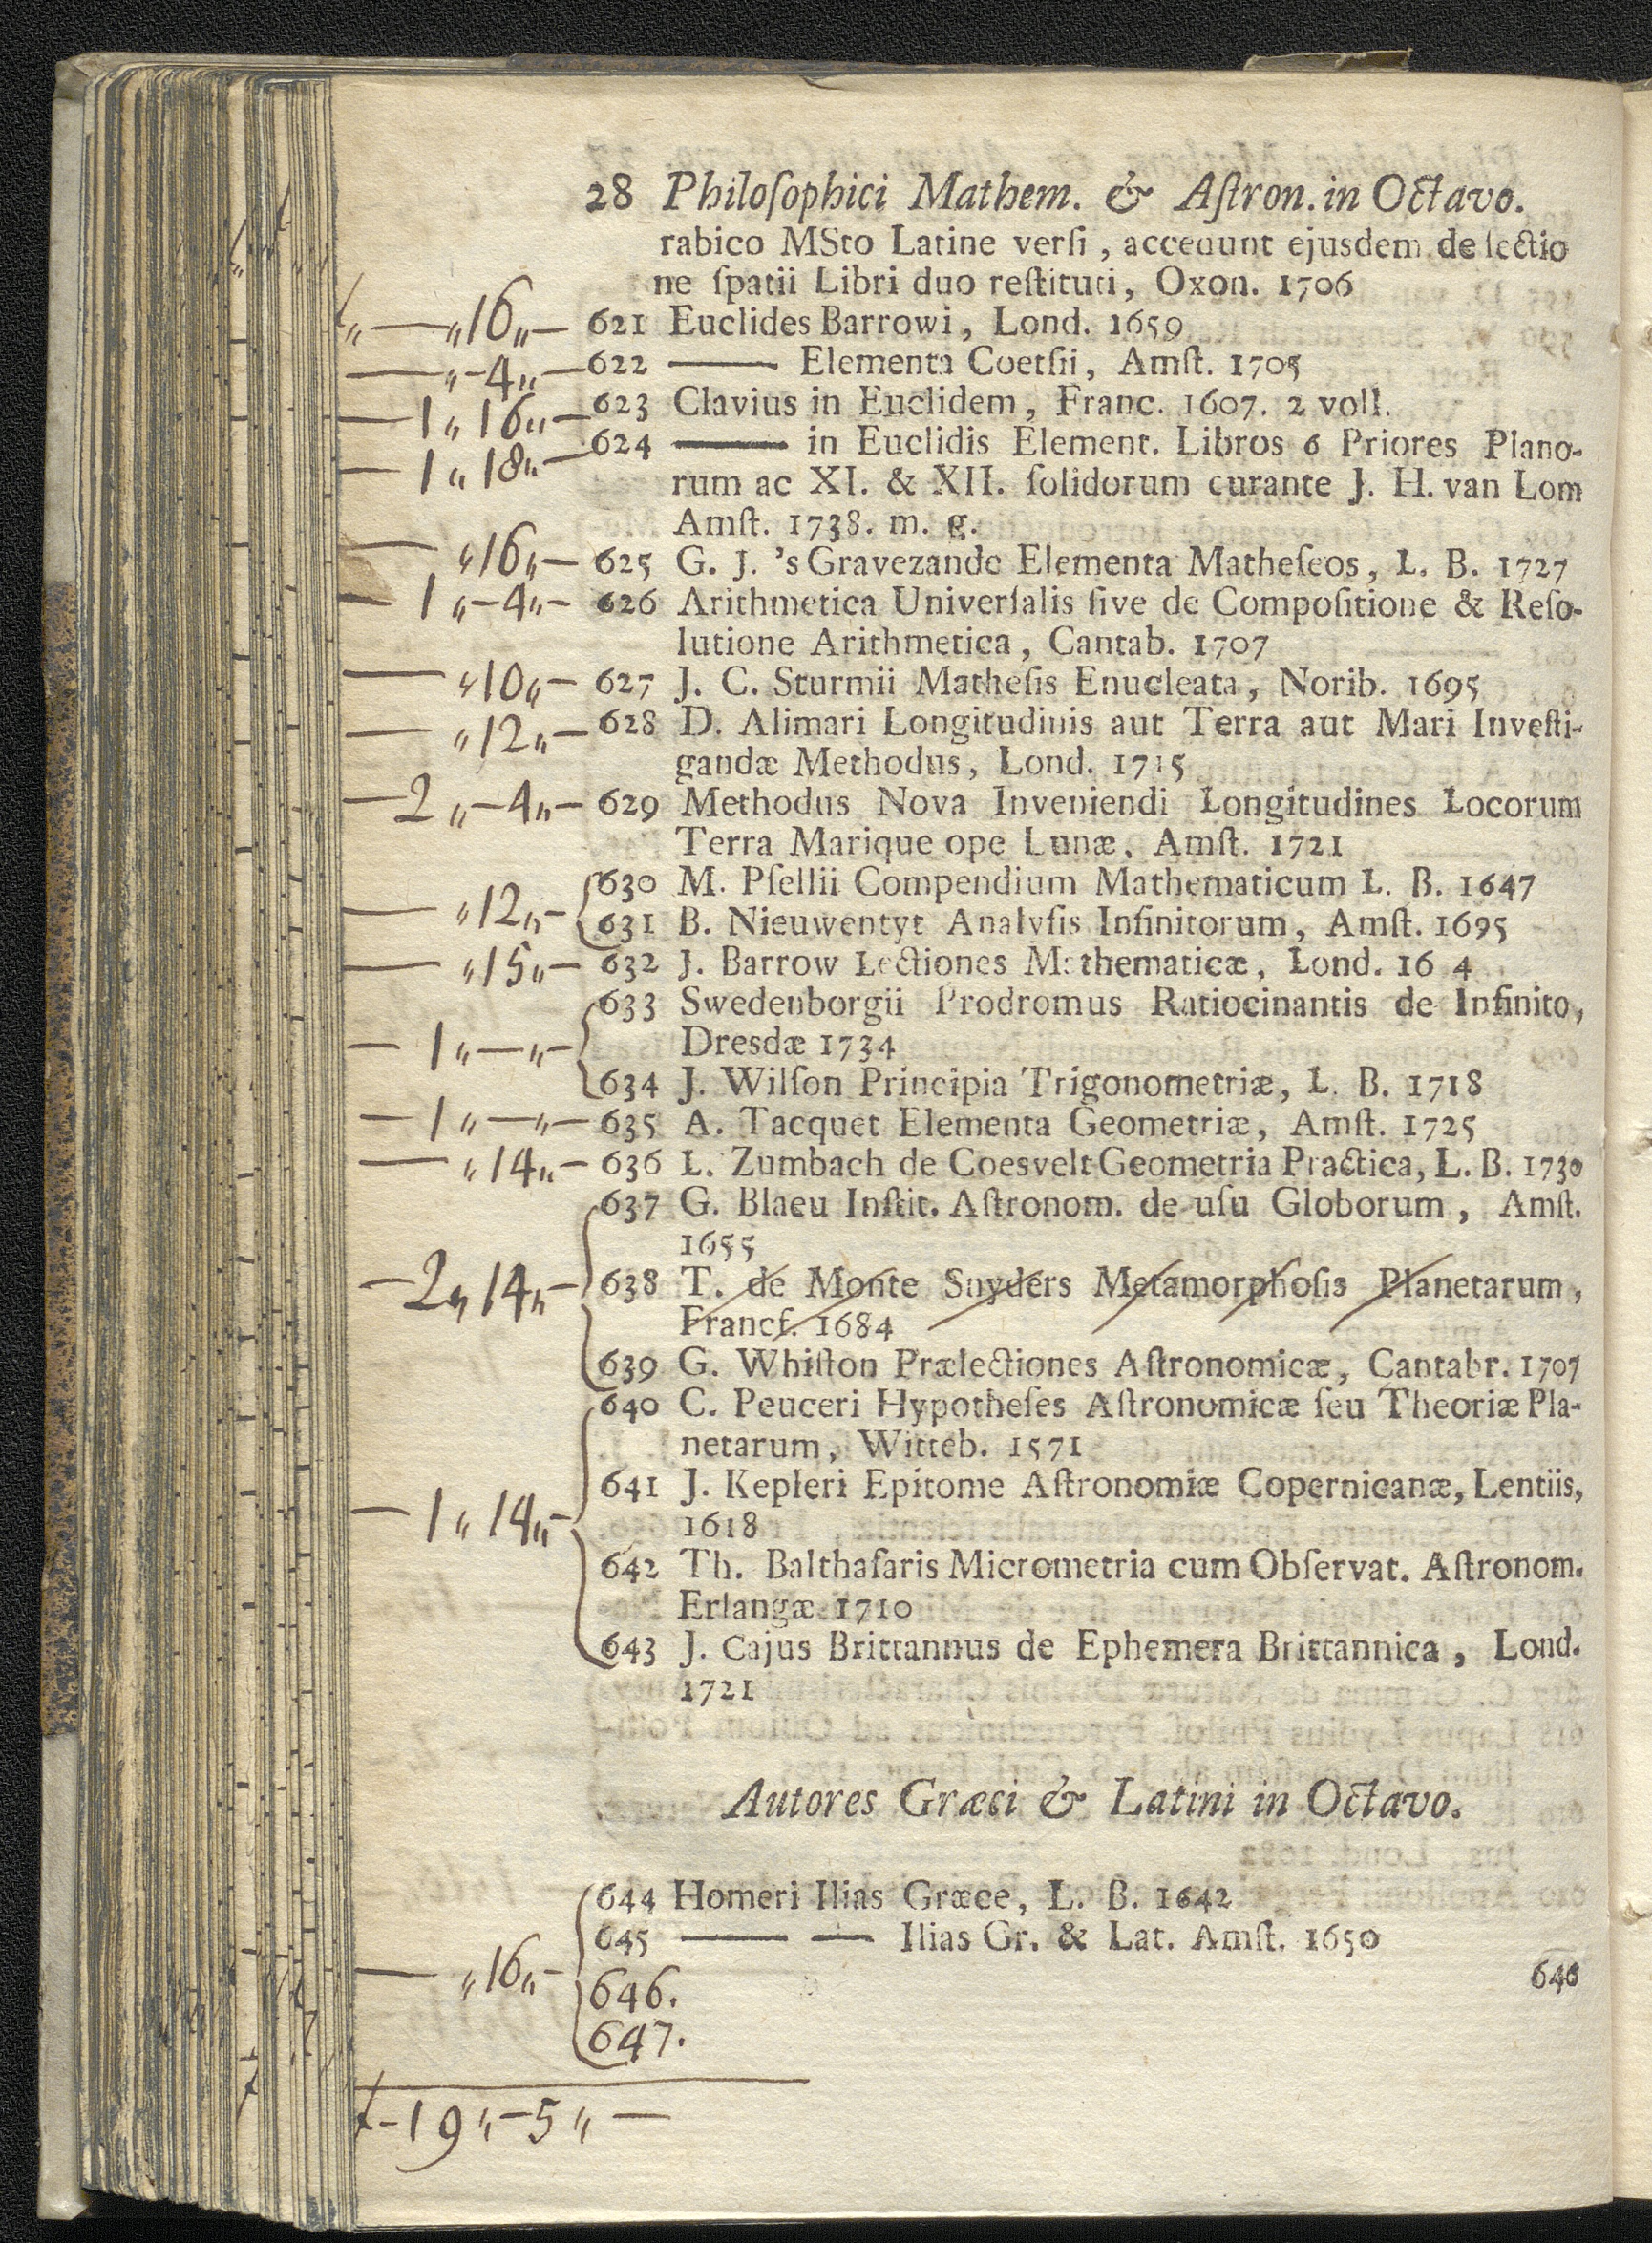 28 Philoſophici Mathem. & Aſtron. in Octavo.
rabico MSto Latine verſi, accedunt ejusdem de ſectio
ne ſpatii Libri duo reſtituti, Oxon. 1706
„ — „ 16 „ — 621 Euclides Barrowi, Lond. 1659
— „ - 4 „ — 622 —— Elementa Coetſii, Amſt. 1705
— 1 „ 16 „ — 623 Clavius in Euclidem, Franc. 1607. 2 voll.
— 1 „ 18 „ — 624 —— in Euclidis Element. Libros 6 Priores Plano-
rum ac XI. & XII. ſolidorum curante J. H. van Lom
Amſt. 1738. m. g.
— „ 16 „ — 625 G. J. 's Gravezande Elementa Matheſeos, L. B. 1727
— 1 „ - 4 „ — 626 Arithmetica Univerſalis ſive de Compoſitione & Reſo-
lutione Arithmetica, Cantab. 1707
— „ 10 „ — 627 J. C. Sturmii Matheſis Enucleata, Norib. 1695
— „ 12 „ — 628 D. Alimari Longitudinis aut Terra aut Mari Inveſti-
gandæ Methodus, Lond. 1715
— 2 „ - 4 „ — 629 Methodus Nova Inveniendi Longitudines Locorum
Terra Marique ope Lunæ, Amſt. 1721
630 M. Pſellii Compendium Mathematicum L. B. 1647
— „ 12 „ — 631 B. Nieuwentyt Analyſis Infinitorum, Amſt. 1695
— „ 15 „ — 632 J. Barrow Lectiones Mathematicæ, Lond. 16 4
633 Swedenborgii Prodromus Ratiocinantis de Infinito,
— 1 „ — „ — Dresdæ 1734
634 J. Wilſon Principia Trigonometriæ, L. B. 1718
— 1 „ — „ — 635 A. Tacquet Elementa Geometriæ, Amſt. 1725
— „ 14 „ — 636 L. Zumbach de Coesvelt Geometria Practica, L. B. 1730
637 G. Blaeu Inſtit. Aſtronom. de uſu Globorum, Amſt.
1655
— 2 „ 14 „ — 638 T. de Monte Snyders Metamorphoſis Planetarum,
Francf. 1684
639 G. Whiſton Prælectiones Aſtronomicæ, Cantabr. 1707
640 C. Peuceri Hypotheſes Aſtronomicæ ſeu Theoriæ Pla-
netarum, Witteb. 1571
641 J. Kepleri Epitome Aſtronomiæ Copernicanæ, Lentiis,
— 1 „ 14 „ — 1618
642 Th. Balthaſaris Micrometria cum Obſervat. Aſtronom.
Erlangæ 1710
643 J. Cajus Brittannus de Ephemera Brittannica, Lond.
1721
Autores Græci & Latini in Octavo.
644 Homeri Ilias Græce, L. B. 1642
645 —— — Ilias Gr. & Lat. Amſt. 1650
646
— „ 16 „ — 646.
647.
- 19 „ - 5 „ —